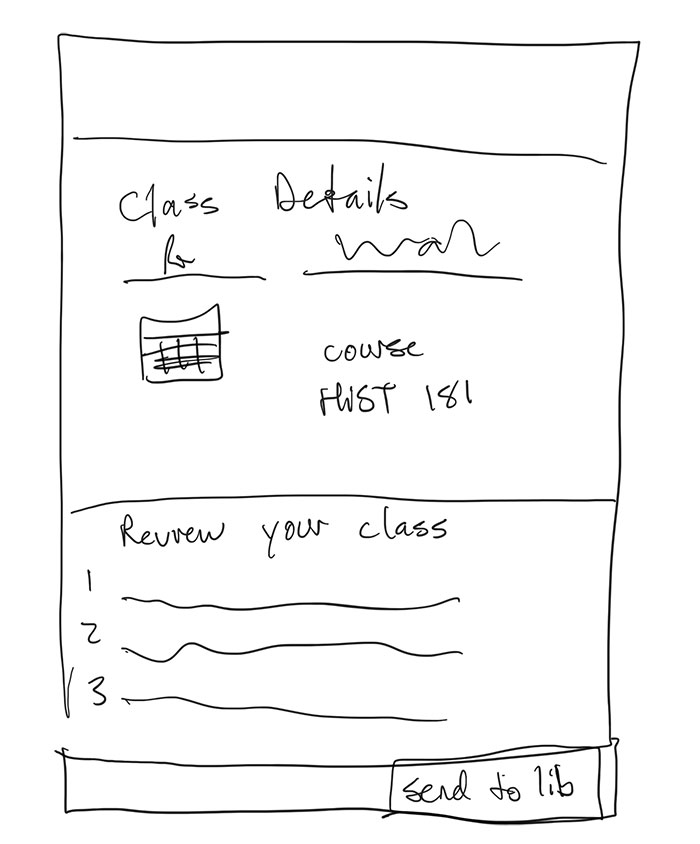 Class Details
course
HWST 181
Review your class
1
2
3
send to lib